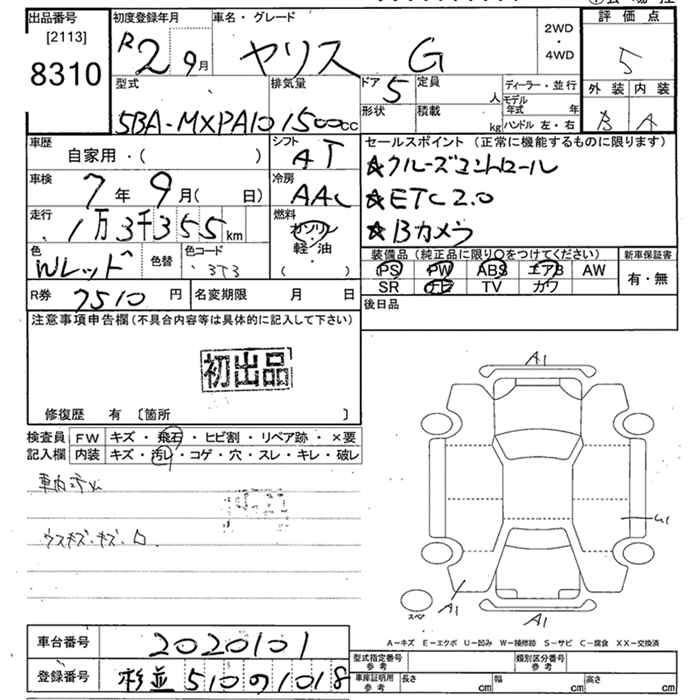 出品番号 初度登録年月 車名・グレード 評価点
[2113] R2 9月 ヤリス G 2WD・4WD 5
8310
型式 排気量 ドア 5 定員 人 ディーラー・並行 外装 内装
5BA-MXPA10 1500cc 形状 積載 kg モデル年式 年 ハンドル 左・右 B A
車歴 自家用・( ) シフト AT セールスポイント (正常に機能するものに限ります)
車検 7年9月( 日) 冷房 AAC ☆クルーズコントロール
走行 1万3千355km 燃料 ガソリン・軽・油( ) ☆ETC2.0
☆Bカメラ
色 Wレッド 色替 色コード 3T3 装備品 (純正品に限り○をつけてください) 新車保証書
PS PW ABS エアB AW 有・無
R券 7510円 名変期限 月 日 SR ナビ TV カワ
注意事項申告欄(不具合内容等は具体的に記入して下さい) 後日品
初出品
修復歴 有 〔箇所 〕
検査員 FW キズ・飛石・ヒビ割・リペア跡・×要
記入欄 内装 キズ・汚レ・コゲ・穴・スレ・キレ・破レ
A1
G1
ウスキズ・キズ・
スペア
A1
A1
A-キズ E-エクボ U-凹み W-補修跡 S-サビ C-腐食 XX-交換済
車台番号 2020101 型式指定番号 参考 類別区分番号 参考
登録番号 杉並 510の1018 車庫証明用 参考 長さ cm 幅 cm 高さ cm